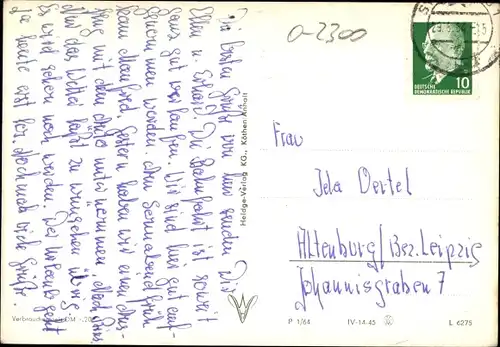 0-2300
29.5.
10
DEUTSCHE
DEMOKRATISCHE REPUBLIK
Die besten Grüße von hier senden Dir
Ellen u. Erhard. Die Bahnfahrt ist soweit
ganz gut verlaufen. Wir sind hier gut auf-
genommen worden. Am Sonnabend früh
kam Manfred. Gestern haben wir einen Aus-
flug mit dem Auto unternommen. Nach
Nur das Wetter läßt zu wünschen übrig.
Es wird schon noch werden. Der geht
ja heute erst los. Nochmals viele Grüße.
Heldge-Verlag KG., Köthen Anhalt
Frau
Ida Oertel
Altenburg/Bez. Leipzig
Johannisgraben 7
P 1/64 IV-14-45 L 6275